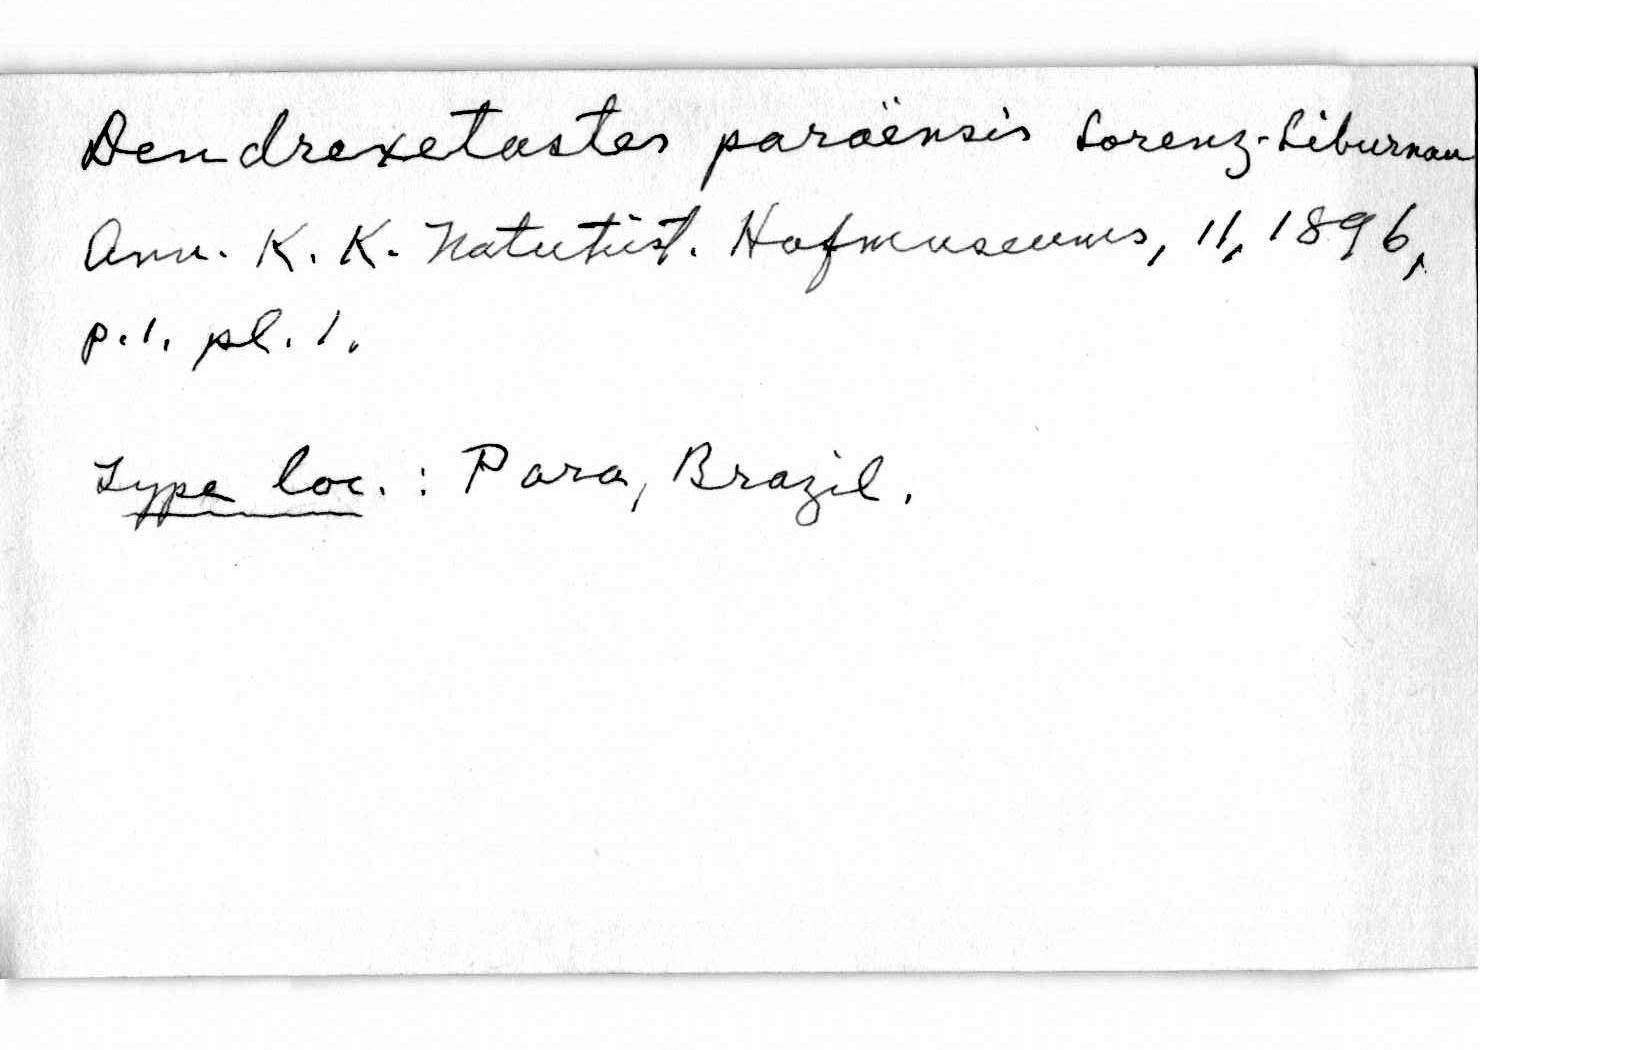 Dendrexetastes paraënsis Lorenz-Liburnau
Ann. K. K. Naturhist. Hofmuseums, 11, 1896,
p. 1. pl. 1.
Type loc. : Para, Brazil.